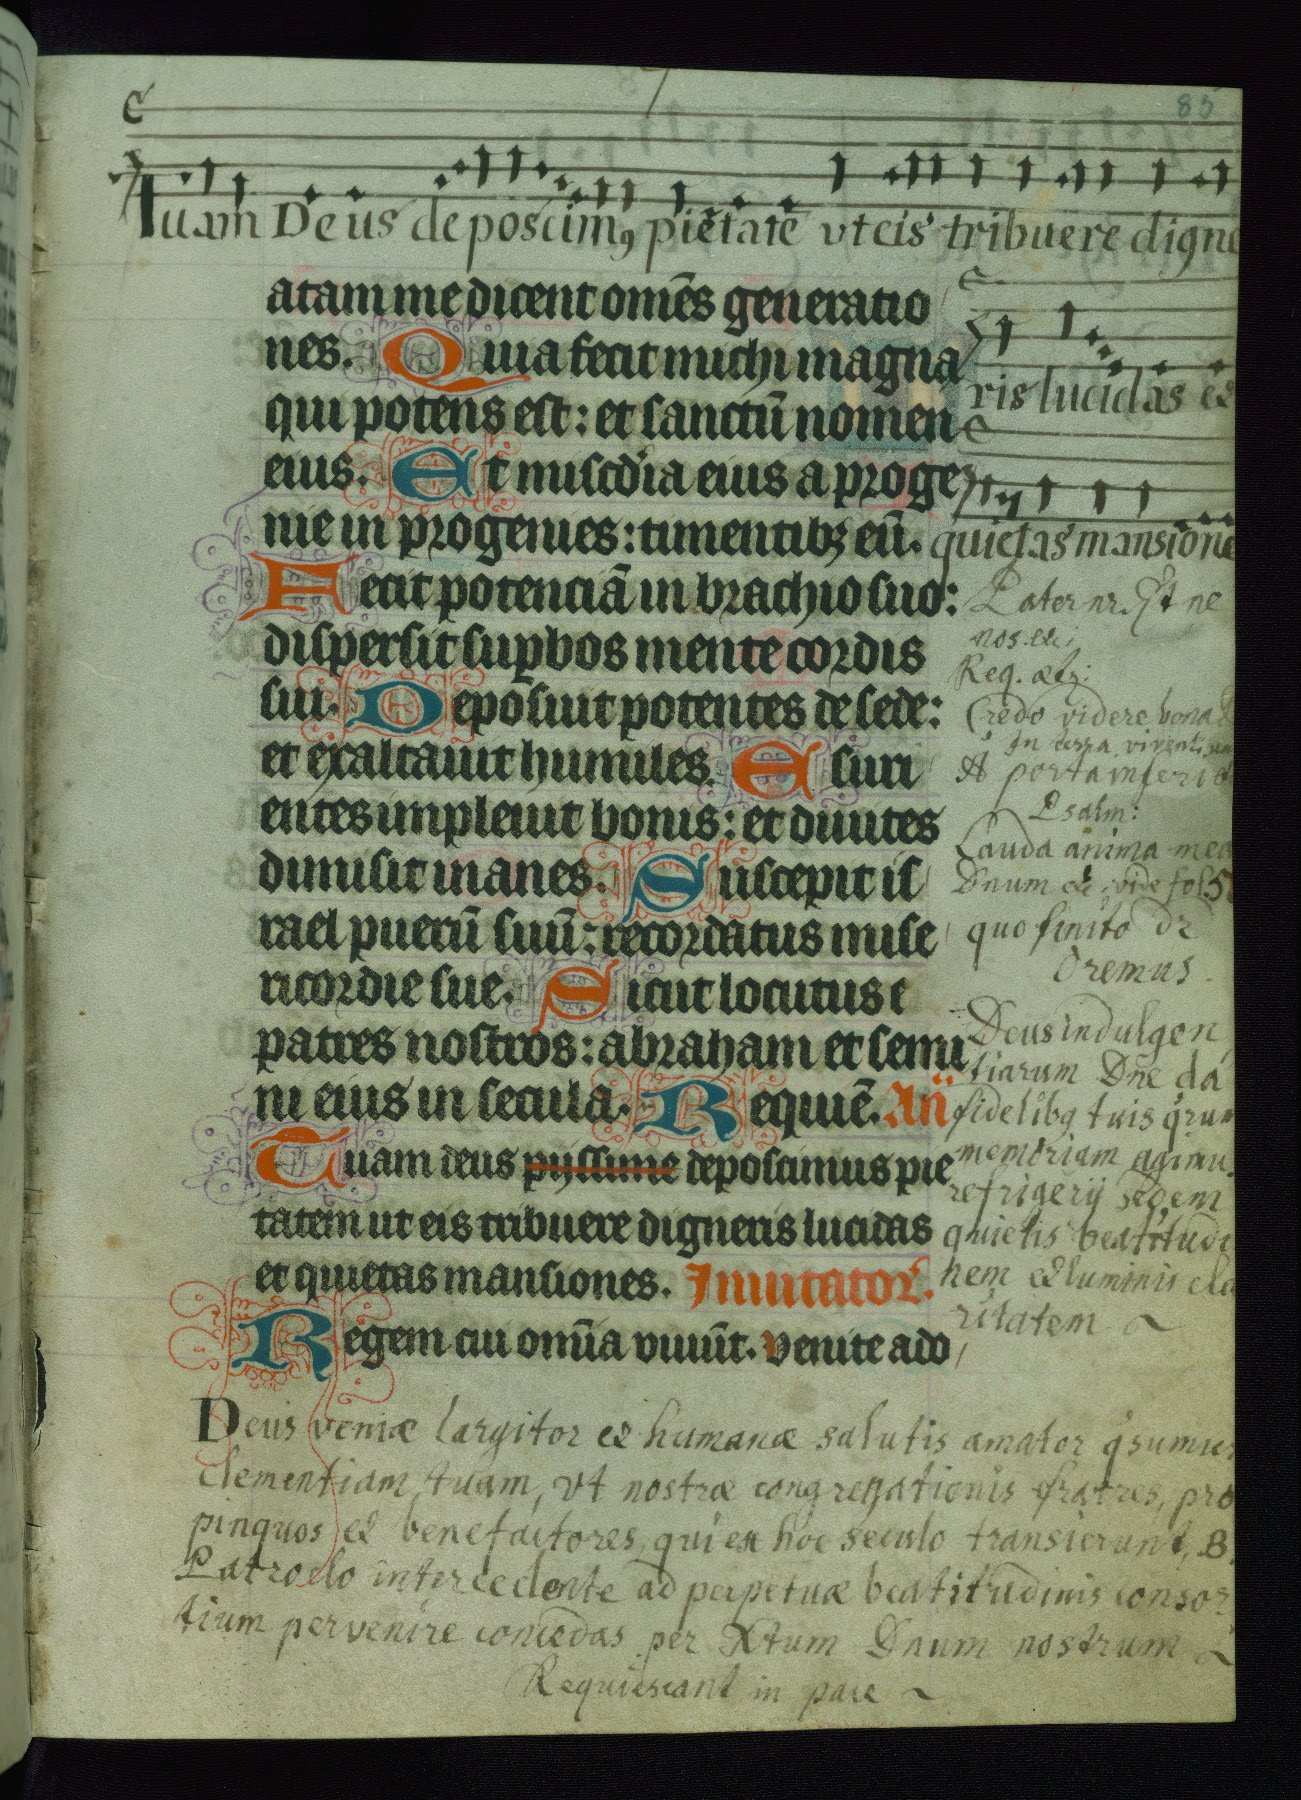 85
Tuam Deus deposcimꝰ pietatē vt eis tribuere digne
atam me dicent omēs generatio
nes. Quia fecit michi magna
qui potens est: et sanctū nomen
eius. Et miscdia eius a proge
nie in progenies: timentibꝫ eū.
Fecit potenciā in brachio suo:
dispersit supbos mente cordis
sui. Deposuit potentes de sede:
et exaltauit humiles. Esuri
entes impleuit bonis: et diuites
dimisit inanes. Suscepit is
rael puerū suū: recordatus mise
ricordie sue. Sicut locutus e
patres nostros: abraham et semi
ni eius in secula. Requiē. An̄
Tuam deus pijssime deposcimus pie
tatem ut eis tribuere digneris lucidas
et quietas mansiones. Inuitator.
Regem cui omīa viuūt. Venite ado
ris lucidas et
quietas mansione
Pater nr. Et ne
nos. etc:
Req. aetz:
Credo videre bona
In terra viventium
A porta inferi
Psalm:
Lauda anima mea
Dnum etc: vide fol 5
quo finito dr
Oremus.
Deus indulgen
tiarum Dn̄e da
fidelibꝫ tuis qrum
memoriam agimu
refrigerij sedem
quietis beatitudi
nem et luminis cla
ritatem.
Deus veniæ largitor et humanæ salutis amator qsumus
clementiam tuam, vt nostræ congregationis fratres, pro
pinquos et benefactores, qui ex hoc seculo transierunt, B.
Patroclo intercedente ad perpetuæ beatitudinis consor
tium pervenire concedas per Xtum Dnum nostrum
Requiescant in pace